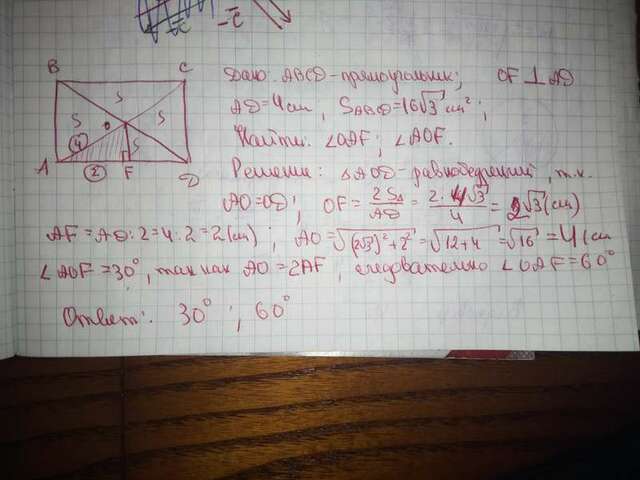 A B C D F O
S S S S
4 2
Дано: ABCD - прямоугольник; OF ⊥ AD
AD = 4 см, S_ABCD = 16√3 см²;
Найти: ∠OAF; ∠AOF.
Решение: △AOD - равнобедренный, т.к.
AO = OD; OF = 2S△/AD = 2·4√3/4 = 2√3 (см)
AF = AD : 2 = 4 : 2 = 2 (см); AO = √(2√3)² + 2² = √12+4 = √16 = 4 (см
∠AOF = 30°, так как AO = 2AF, следовательно ∠OAF = 60°
Ответ: 30°; 60°